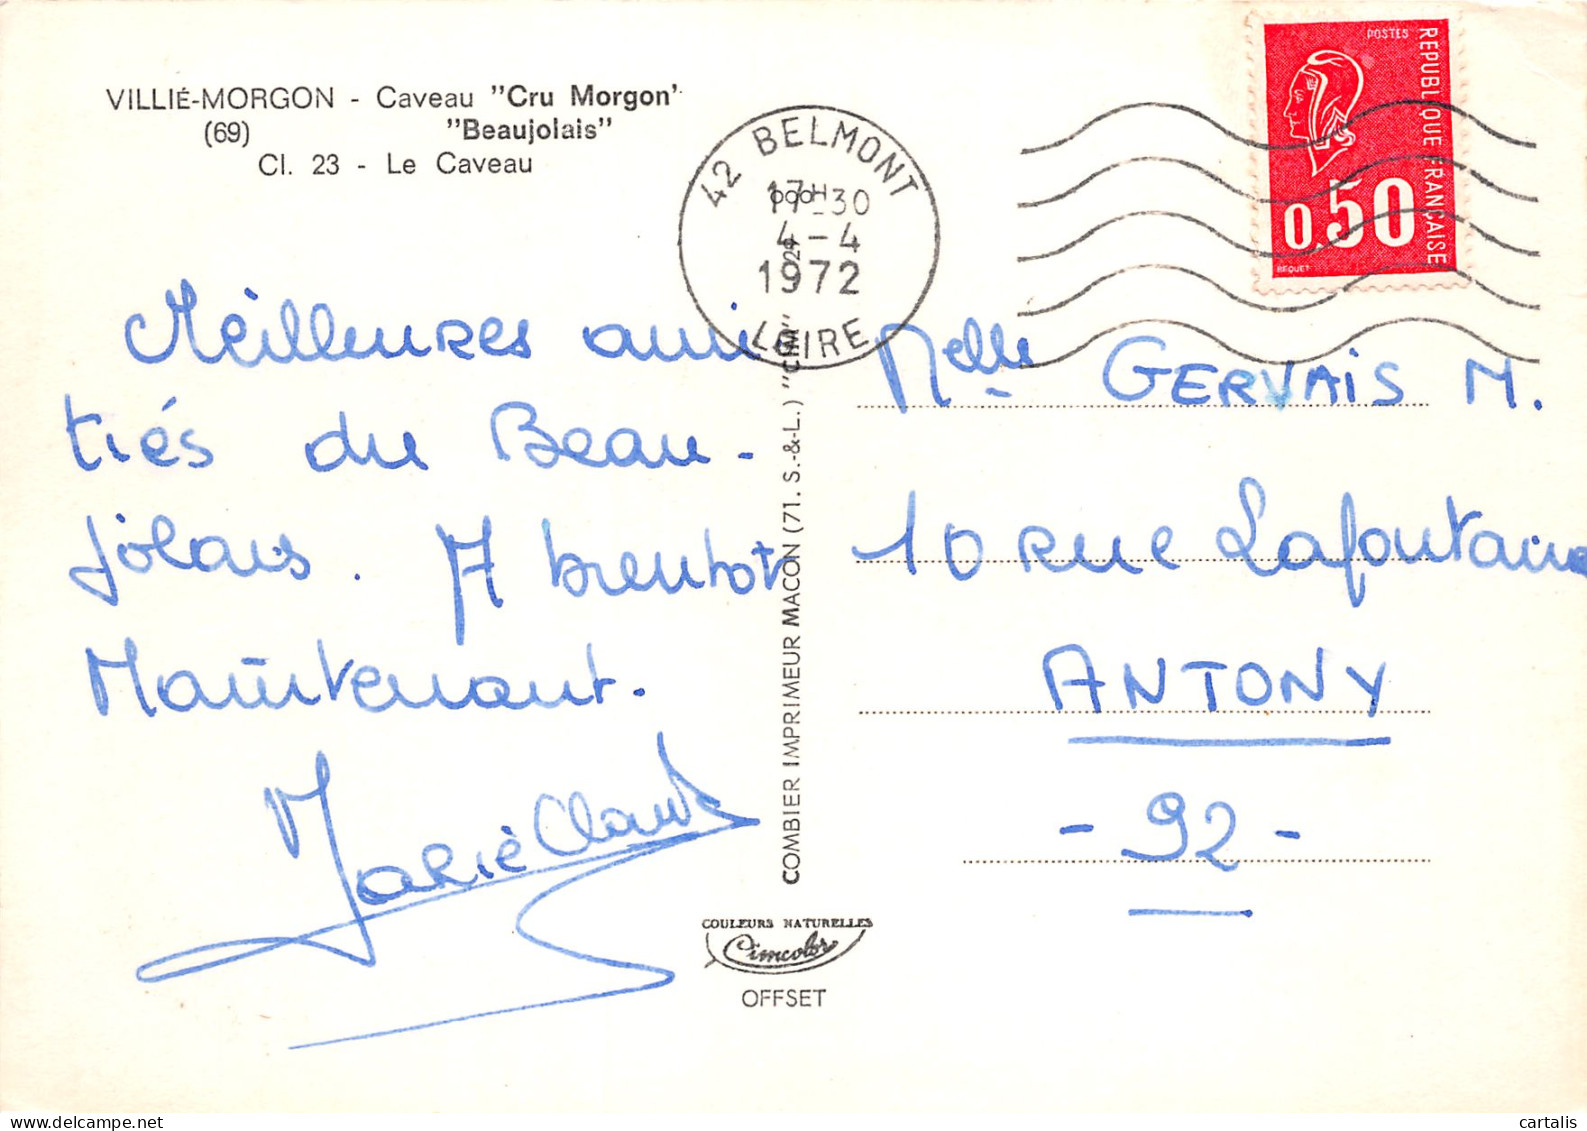 VILLIÉ-MORGON - Caveau "Cru Morgon"
(69) "Beaujolais"
Cl. 23 - Le Caveau
42 BELMONT
17-30
4-4
1972
LOIRE
POSTES
REPUBLIQUE FRANÇAISE
0.50
BEQUET
Meilleures ami
tiés du Beau-
jolais. A bientôt
Maintenant.
Marie Claude
COMBIER IMPRIMEUR MACON (71. S.-&-L.) "CIM"
COULEURS NATURELLES
Cimcolor
OFFSET
Melle GERVAIS M.
10 rue Lafontaine
ANTONY
- 92 -
cartalis